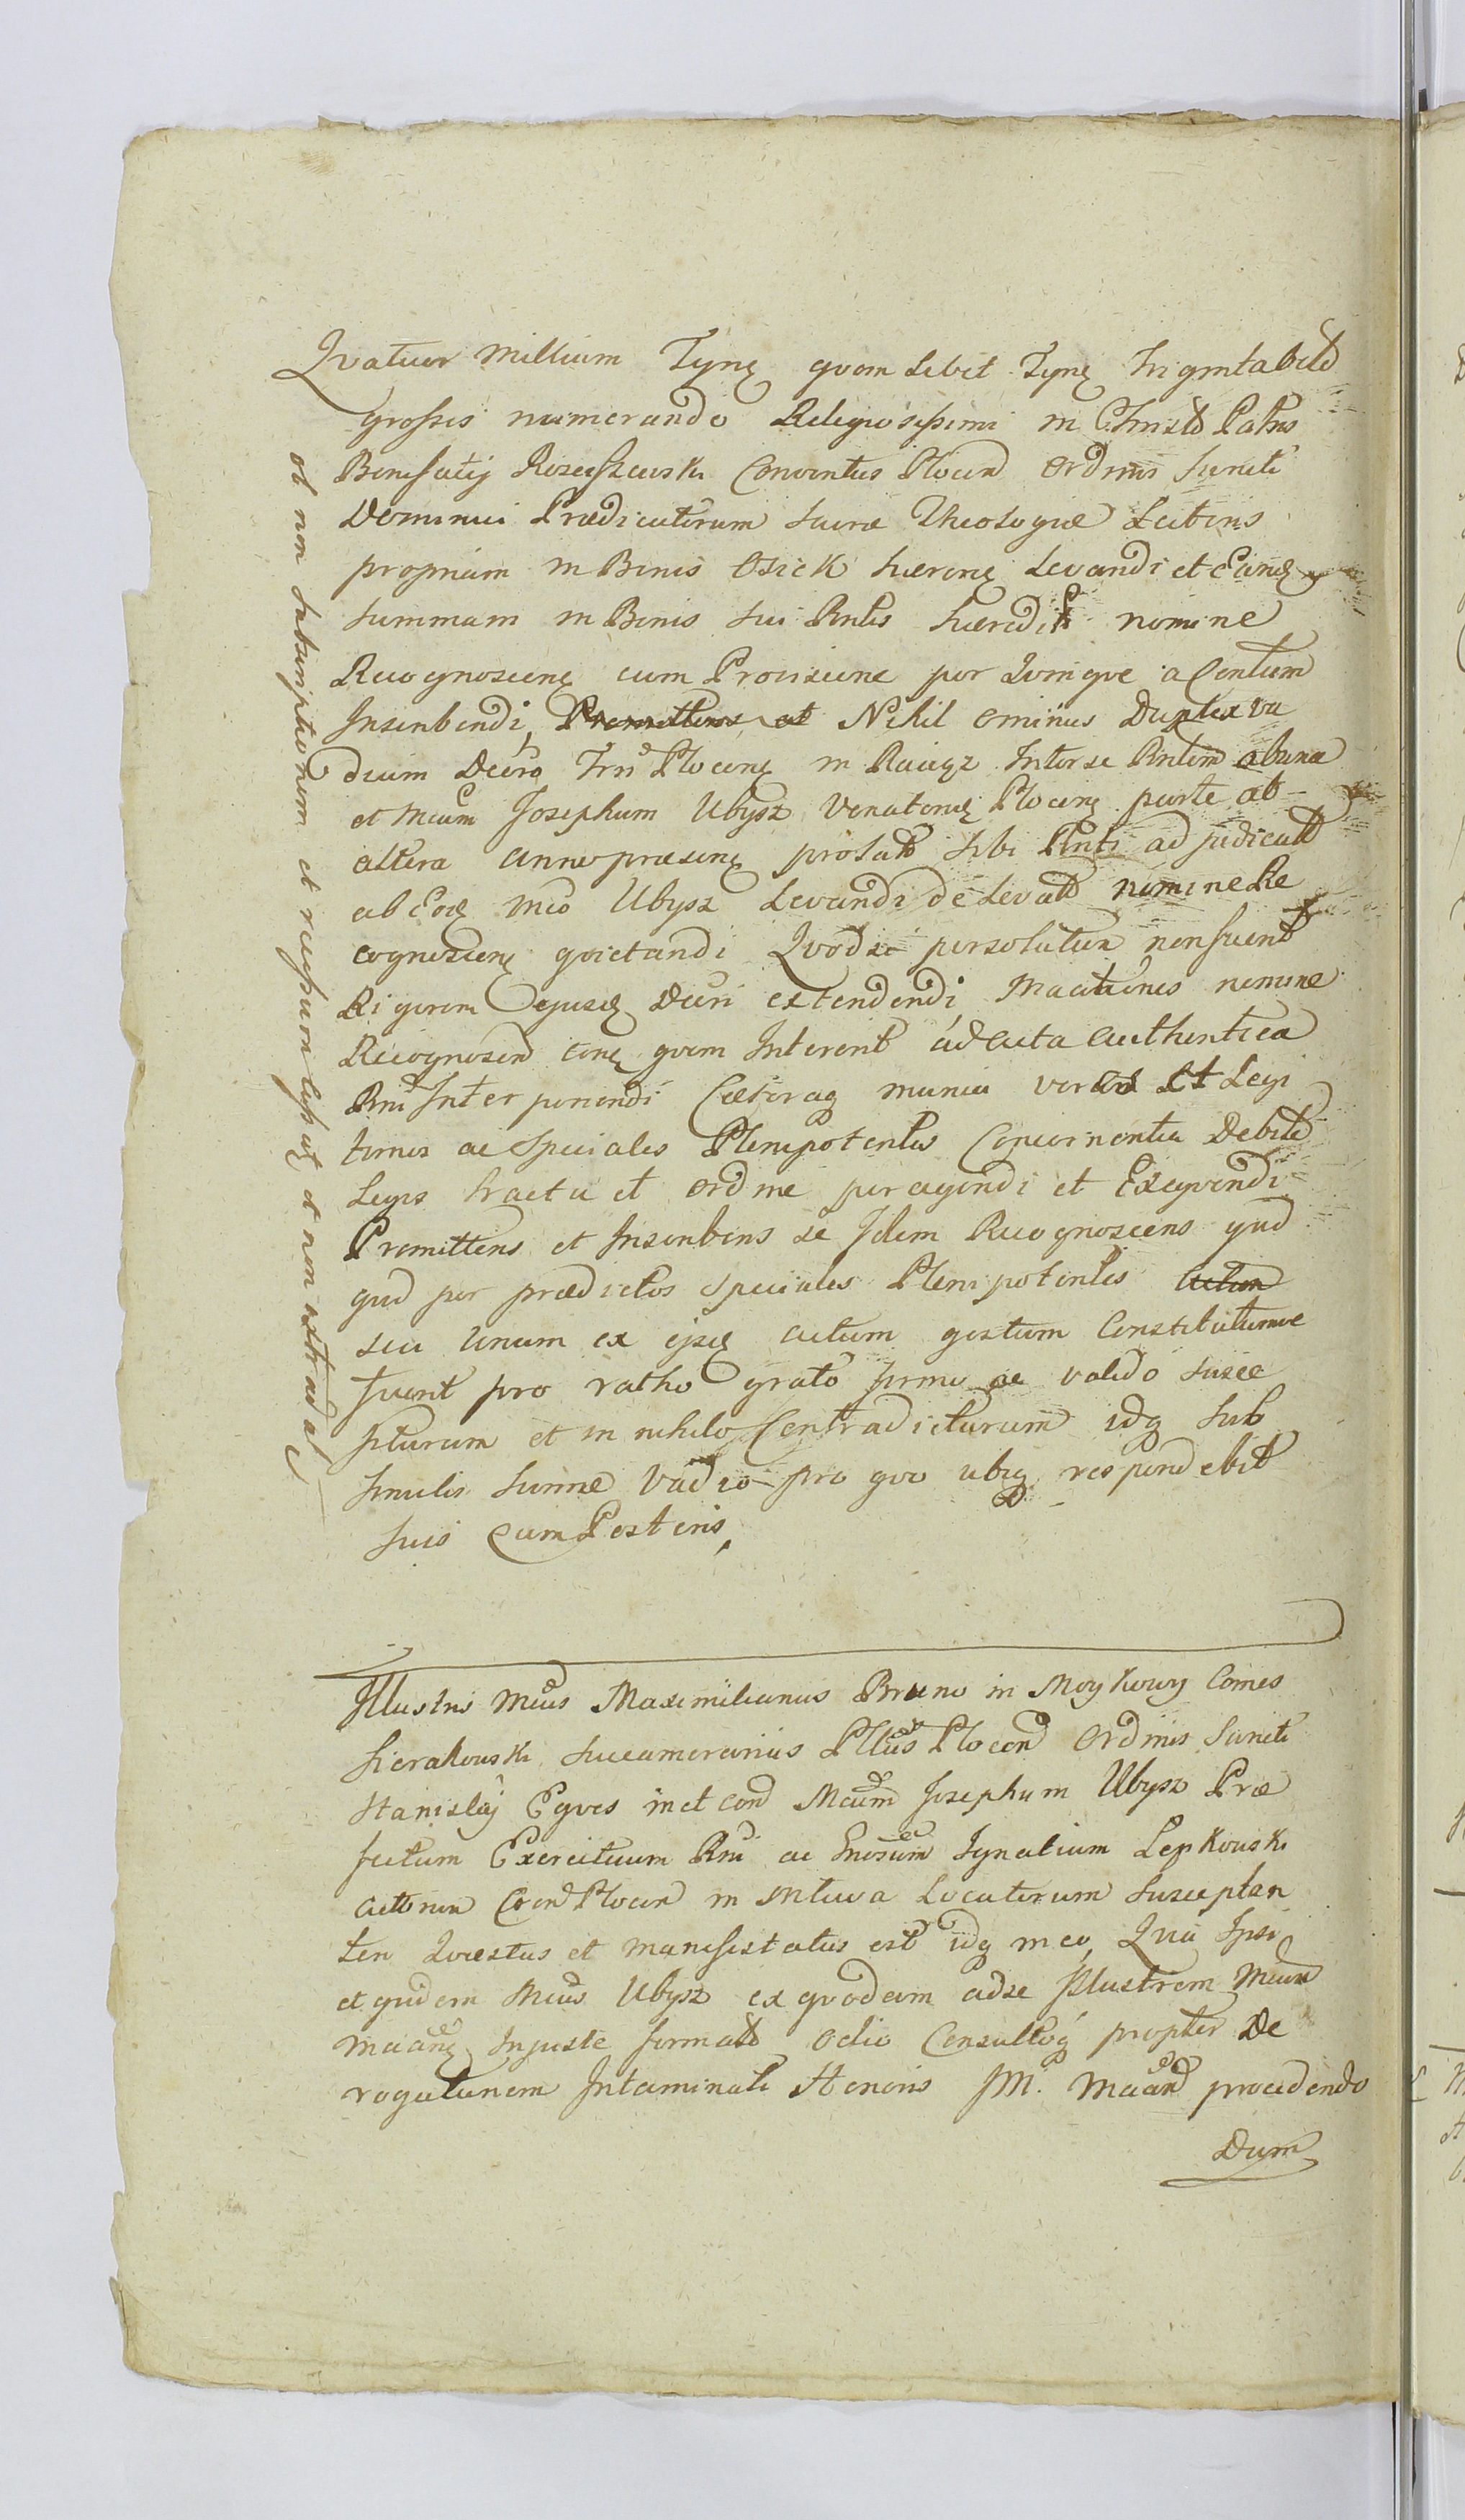 Qvatuor Millium Tync qvam Libet Tync trigintabild
grossis numerando Religiosissimi in Christo Patris
Bonifatij Roseiszewski Conventus Plocen Ordinis Sancti
Dominici Prædicatorum Sacræ Theologiæ Lectoris
propriam in Bonis Osiek hæreng Levandi et Eand
Summam in Bonis Sui Pntis hæredit nomine
Recognoscend cum Provisione per Qvinqve a Centum
Inscribendi, Nihil ominus Duplex va
dium Decro Trii Plocen in Raciąz Inter se Pntem ab una
et Mcum Josephum Ubysz Venatorem Plocen parte ab
altera Anno præsenti prolato sibi Pnti adjudicatt
ab Eod Mco Ubysz Levandi de Levatt nomine Re
cognoscend qvietandi Qvod si persolutum non fuerit
Rigorem ejusd Decri extendendi, Macitionis nomine
Recognoscend eang qvam Intererit ad acta authentica
Rni Interponendi Cæteraq munia veros et Legi
timos ac Speciales Plenipotentes Concernentia Debite
Legis tractu et ordine peragendi et Exeqvendi
Promittens et Inscribens se Idem Recognoscens qud
qud per prædictos Speciales Plenipotentes
seu unum ex ipsis actum gestum Constitutumve
fuerit pro ratho grato firmo ac valido susce
pturum et in nihilo Contradicturum idq sub
simulis Summæ Vadio pro qvo ubiq respondebit
suis cum Posteris,
ob non subscriptionem et recessum lapsat et non extradat
Illustris Mcus Maximilianus Bruno in Moykowy Comes
Sierakowski Succamerarius Pllus Plocen Ordinis Sancti
Stanislaj Eqves in et con Mcum Josephum Ubysz Præ
fectum Exercituum Rni ac Gnosum Ignatium Lepkowski
actorum Cren Plocen in Mlawa Locatorum Suscepten
ten Qvæstus et manifestatus est idq in eo, Qvia Ipsi
et qvidem Mcus Ubysz ex qvodam ad se Illustrem Mcum
Injuste formato odio Consultoq propter De
rogationem Intaminati Honoris JM. procedendo
Dum